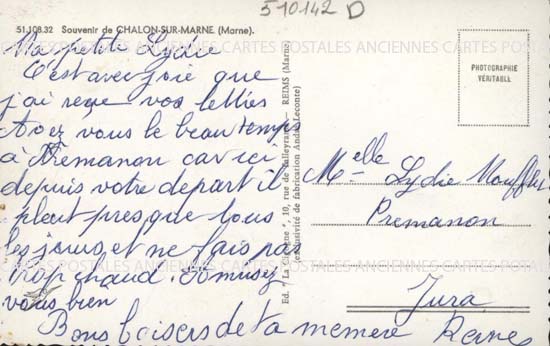 5-10142 D
51.108.32 Souvenir de CHALON-SUR-MARNE (Marne).
CARTES POSTALES ANCIENNES CARTES POSTALES ANCIENNES CARTES POSTALES
Ma petite Lydie
C'est avec joie que
j'ai reçue vos lettres
Avez vous le beau temps
à Prémanon car ici
depuis votre départ il
pleut presque tous
les jours et ne fais pas
trop chaud. Amusez
vous bien
Bons baisers de ta mémère Reine
Ed. " La Cigogne ", 10, rue de Talleyrand REIMS (Marne)
(exclusivité de fabrication André Leconte)
PHOTOGRAPHIE
VÉRITABLE
Melle Lydie
Prémanon
Jura